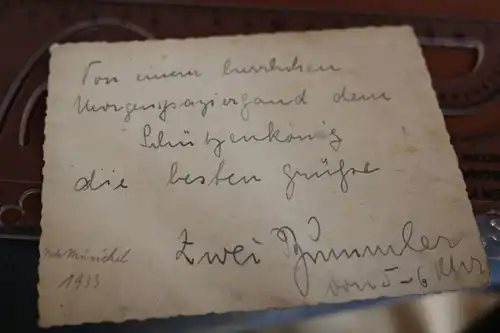 Von einem herrlichen
Morgenspaziergang dem
Schützenkönig
die besten Grüße
Zwei Bummler
von 5-6 Uhr
1933